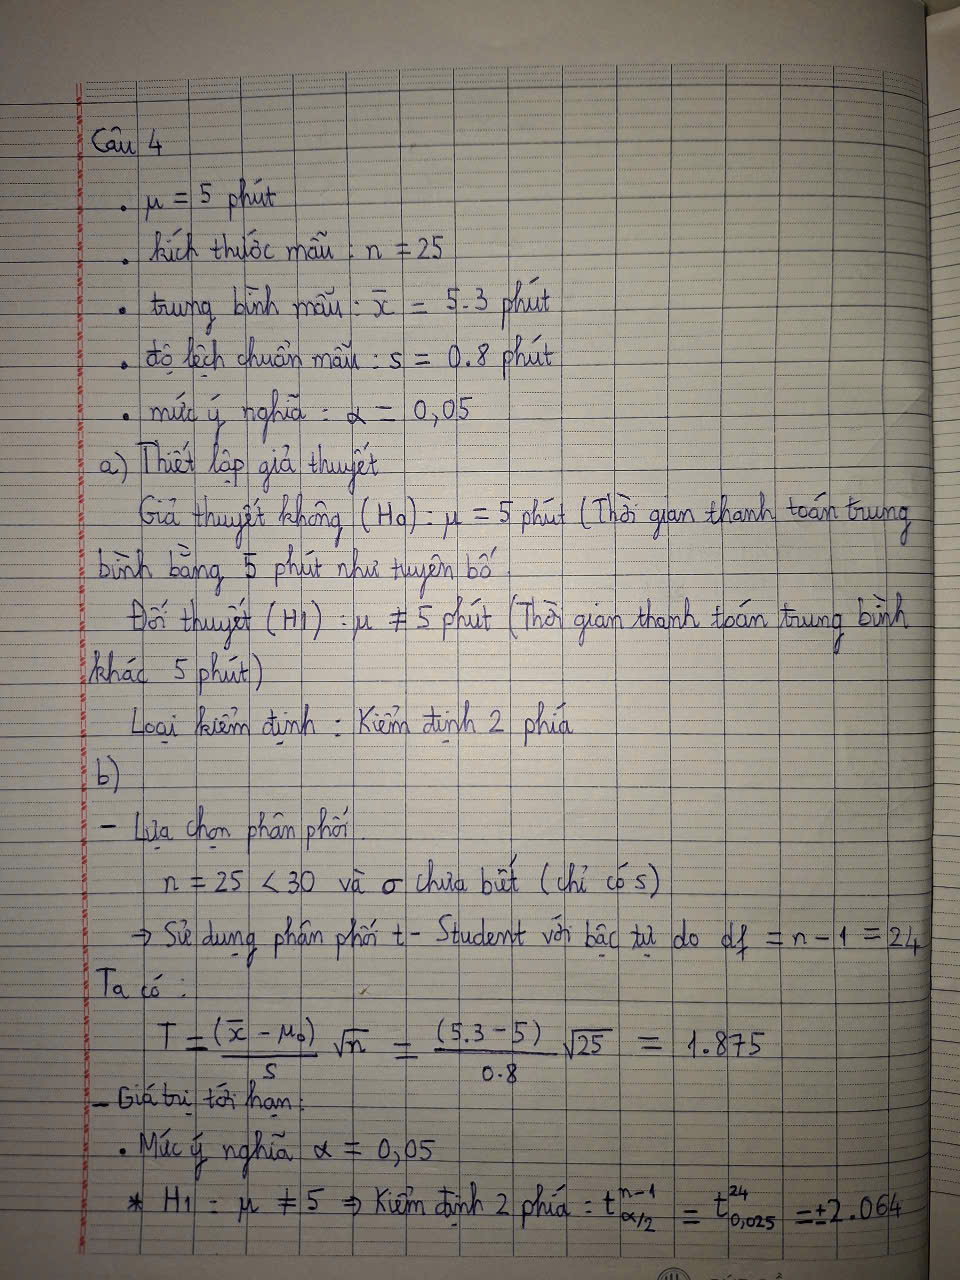 Câu 4
• μ = 5 phút
• kích thước mẫu : n = 25
• trung bình mẫu : x̄ = 5.3 phút
• độ lệch chuẩn mẫu : s = 0.8 phút
• mức ý nghĩa : α = 0,05
a) Thiết lập giả thuyết
Giả thuyết không (H0) : μ = 5 phút (Thời gian thanh toán trung
bình bằng 5 phút như tuyên bố
Đối thuyết (H1) : μ ≠ 5 phút (Thời gian thanh toán trung bình
khác 5 phút)
Loại kiểm định : Kiểm định 2 phía
b)
- Lựa chọn phân phối.
n = 25 < 30 và σ chưa biết (chỉ có s)
⇒ Sử dụng phân phối t - Student với bậc tự do df = n - 1 = 24
Ta có :
T = (x̄ - μ₀)/s √n = (5.3 - 5)/0.8 √25 = 1.875
- Giá trị tới hạn :
• Mức ý nghĩa α = 0,05
* H1 : μ ≠ 5 ⇒ Kiểm định 2 phía : t^{n-1}_{α/2} = t^{24}_{0,025} = ±2.064